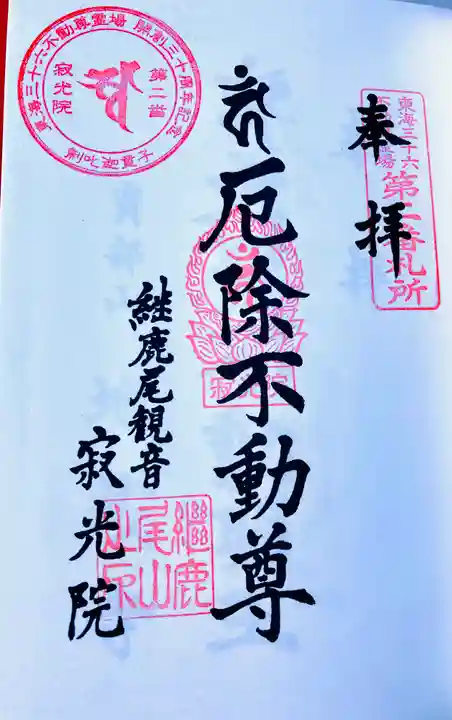 奉拝
東海三十六
第二番札所
厄除不動尊
寂光院
継鹿尾観音
寂光院
継鹿尾山
東海三十六不動尊霊場 開創三十周年記念
第二番
寂光院